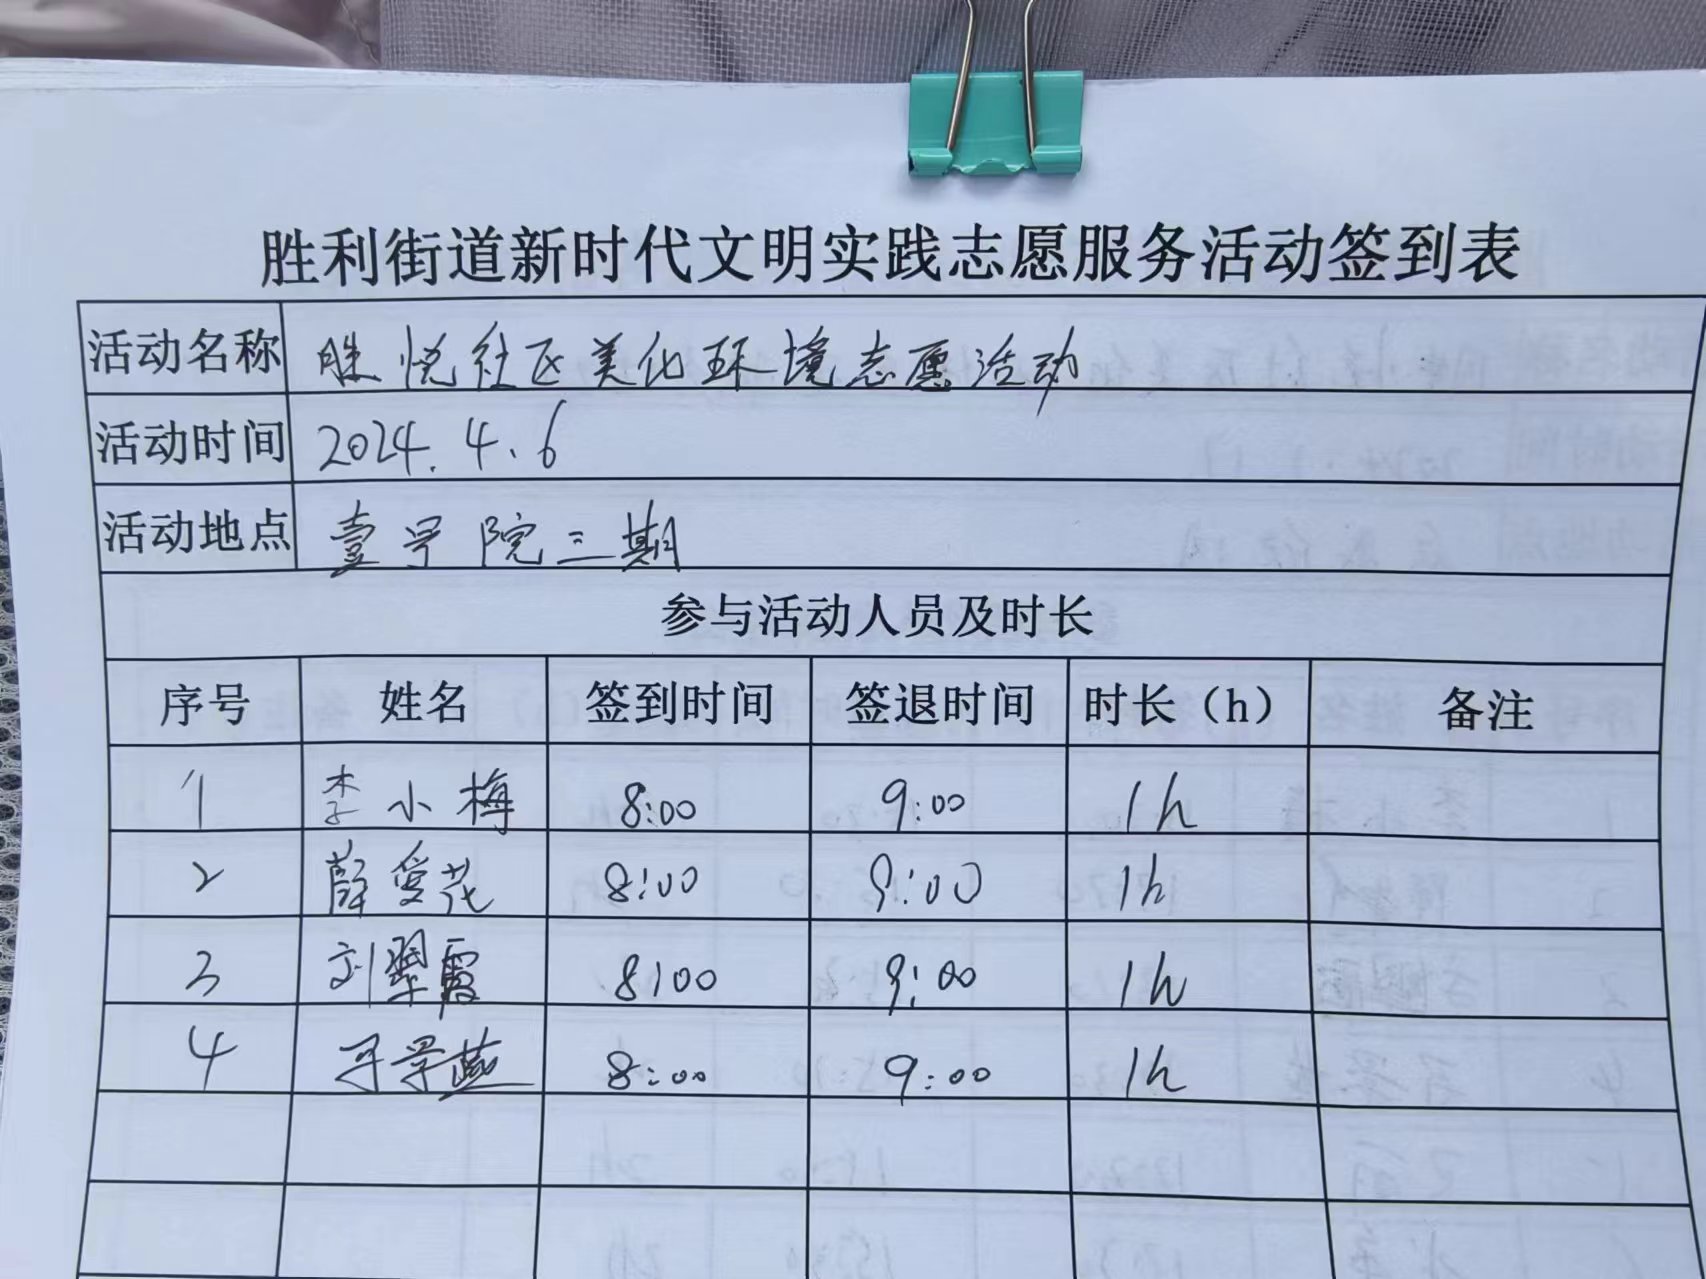 胜利街道新时代文明实践志愿服务活动签到表
活动名称 胜悦社区美化环境志愿活动
活动时间 2024.4.6
活动地点 壹号院三期
参与活动人员及时长
序号 姓名 签到时间 签退时间 时长（h） 备注
1 李小梅 8:00 9:00 1h
2 薛爱花 8:00 9:00 1h
3 刘翠霞 8:00 9:00 1h
4 8:00 9:00 1h